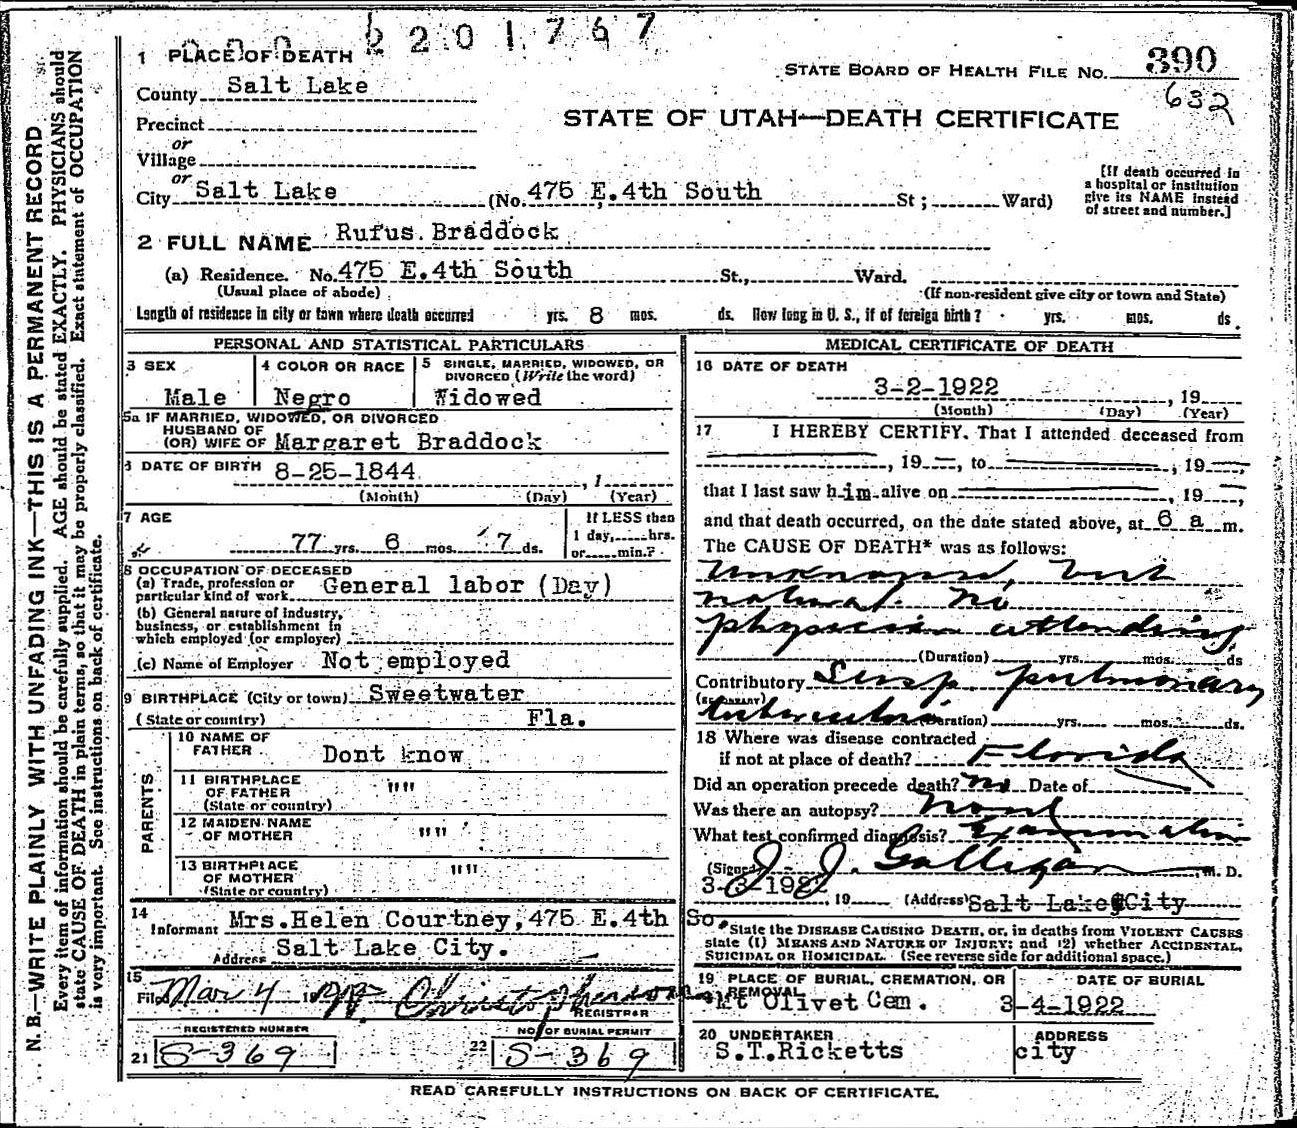 2 2 0 1 7 6 7
1 PLACE OF DEATH
STATE BOARD OF HEALTH FILE No. 390
632
County Salt Lake
STATE OF UTAH—DEATH CERTIFICATE
Precinct
or
Village
or
City Salt Lake (No. 475 E.4th South St ; Ward)
[If death occurred in
a hospital or institution
give its NAME instead
of street and number.]
2 FULL NAME Rufus Braddock
(a) Residence. No. 475 E.4th South St., Ward.
(Usual place of abode) (If non-resident give city or town and State)
Length of residence in city or town where death occurred yrs. 8 mos. ds. How long in U. S., if of foreign birth? yrs. mos. ds.
PERSONAL AND STATISTICAL PARTICULARS
3 SEX
Male
4 COLOR OR RACE
Negro
5 SINGLE, MARRIED, WIDOWED, OR
DIVORCED (Write the word)
Widowed
5a IF MARRIED, WIDOWED, OR DIVORCED
HUSBAND OF
(OR) WIFE OF Margaret Braddock
6 DATE OF BIRTH 8-25-1844 , 1
(Month) (Day) (Year)
7 AGE
77 yrs. 6 mos. 7 ds.
If LESS than
1 day, hrs.
or min.?
8 OCCUPATION OF DECEASED
(a) Trade, profession or
particular kind of work General labor (Day)
(b) General nature of industry,
business, or establishment in
which employed (or employer)
(c) Name of Employer Not employed
9 BIRTHPLACE (City or town) Sweetwater
(State or country) Fla.
PARENTS
10 NAME OF
FATHER Dont know
11 BIRTHPLACE
OF FATHER """
(State or country)
12 MAIDEN NAME
OF MOTHER """
13 BIRTHPLACE
OF MOTHER """
(State or country)
14
Informant Mrs.Helen Courtney,475 E.4th So.
Address Salt Lake City.
15
Filed Mar 4 1922
REGISTRAR
REGISTERED NUMBER
21 S-369
NO. OF BURIAL PERMIT
22 S-369
MEDICAL CERTIFICATE OF DEATH
16 DATE OF DEATH
3-2-1922 , 19
(Month) (Day) (Year)
17 I HEREBY CERTIFY, That I attended deceased from
, 19 , to , 19 ,
that I last saw him alive on , 19 ,
and that death occurred, on the date stated above, at 6 a m.
The CAUSE OF DEATH* was as follows:
Unknown, but
natural. No
physician attending.
(Duration) yrs. mos. ds
Contributory Susp. pulmonary
tuberculosis (Duration) yrs. mos. ds.
18 Where was disease contracted
if not at place of death? Florida
Did an operation precede death? No Date of
Was there an autopsy? None
What test confirmed diagnosis? Examination
(Signed) J. J. Galligan M. D.
3-3-1922 , 19 (Address) Salt Lake City
*State the DISEASE CAUSING DEATH, or, in deaths from VIOLENT CAUSES
state (1) MEANS AND NATURE OF INJURY; and (2) whether ACCIDENTAL,
SUICIDAL OR HOMICIDAL. (See reverse side for additional space.)
19 PLACE OF BURIAL, CREMATION, OR
REMOVAL
Mt Olivet Cem.
DATE OF BURIAL
3-4-1922
20 UNDERTAKER
S.T.Ricketts
ADDRESS
city
READ CAREFULLY INSTRUCTIONS ON BACK OF CERTIFICATE.
N. B.—WRITE PLAINLY WITH UNFADING INK—THIS IS A PERMANENT RECORD
Every item of information should be carefully supplied. AGE should be stated EXACTLY. PHYSICIANS should
state CAUSE OF DEATH in plain terms, so that it may be properly classified. Exact statement of OCCUPATION
is very important. See instructions on back of certificate.